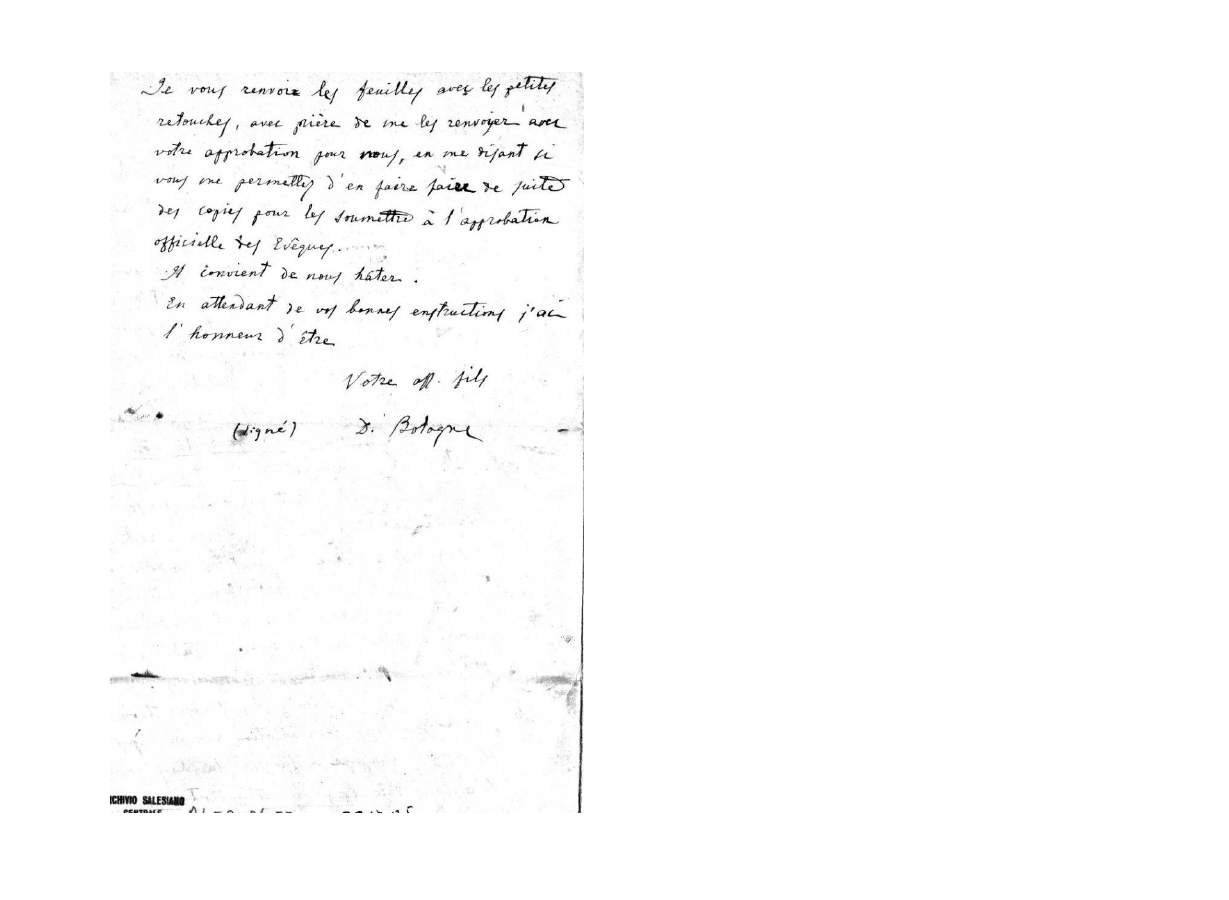 Je vous renvoie les feuilles avec les petites
retouches, avec prière de me les renvoyer avec
votre approbation pour nous, en me disant si
vous me permettez d'en faire faire de suite
des copies pour les soumettre à l'approbation
officielle des Evêques.
Il convient de nous hâter.
En attendant de vos bonnes enstructions j'ai
l'honneur d'être
Votre aff. fils
(signé) D. Bologne
CHIVIO SALESIANO
CENTRALE